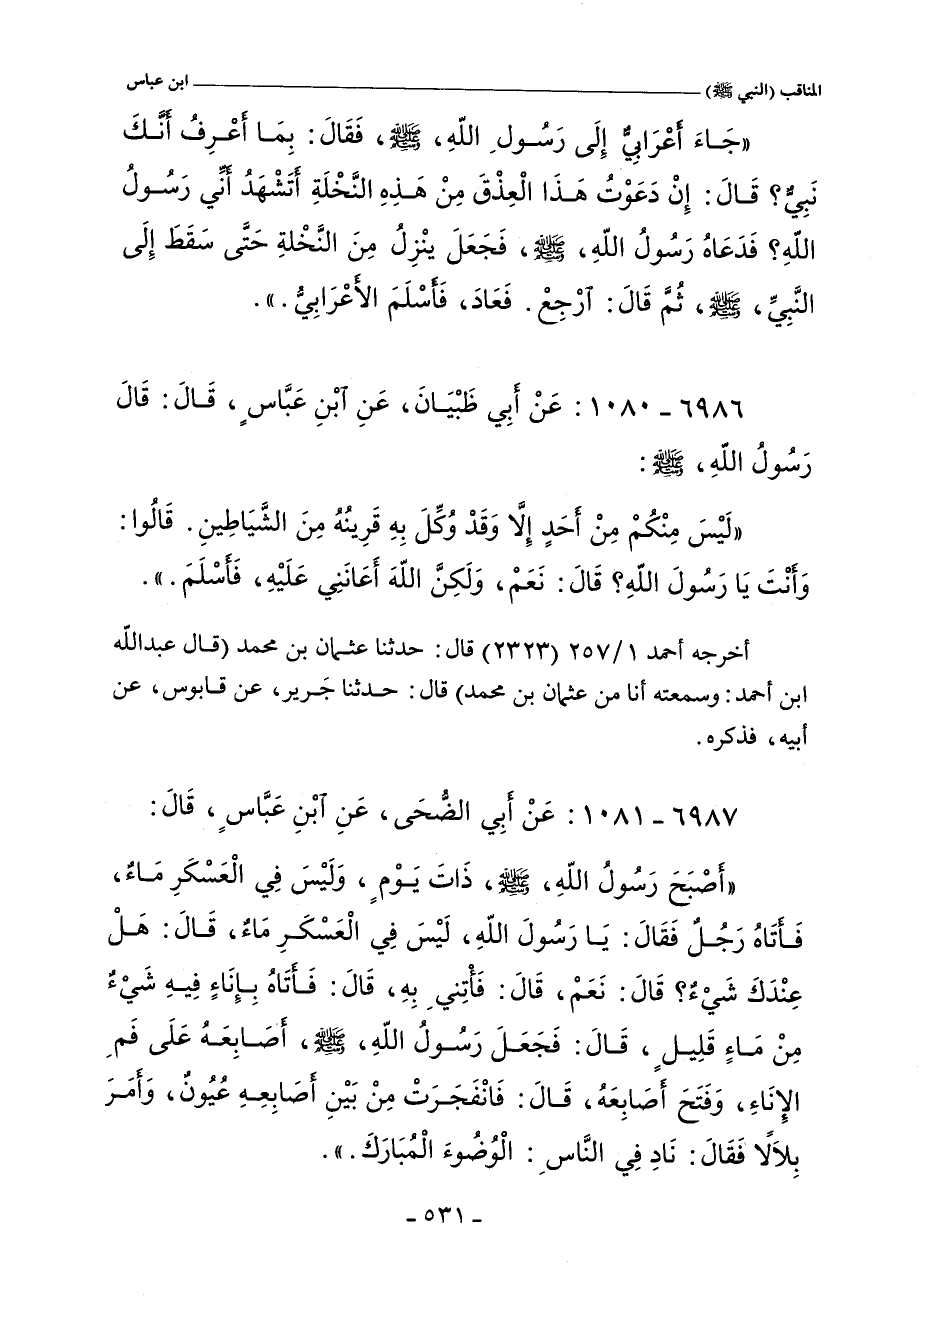 المناقب (النبي ﷺ) ـــــــــ ابن عباس
«جَاءَ أَعْرَابِيٌّ إِلَى رَسُولِ اللّهِ، ﷺ، فَقَالَ: بِمَا أَعْرِفُ أَنَّكَ
نَبِيٌّ؟ قَالَ: إِنْ دَعَوْتُ هَذَا الْعِذْقَ مِنْ هَذِهِ النَّخْلَةِ أَتَشْهَدُ أَنِّي رَسُولُ
اللّهِ؟ فَدَعَاهُ رَسُولُ اللّهِ، ﷺ، فَجَعَلَ يَنْزِلُ مِنَ النَّخْلَةِ حَتَّى سَقَطَ إِلَى
النَّبِيِّ، ﷺ، ثُمَّ قَالَ: ٱرْجِعْ. فَعَادَ، فَأَسْلَمَ الأَعْرَابِيُّ.».
٦٩٨٦ - ١٠٨٠: عَنْ أَبِي ظَبْيَانَ، عَنِ ٱبْنِ عَبَّاسٍ، قَالَ: قَالَ
رَسُولُ اللّهِ، ﷺ:
«لَيْسَ مِنْكُمْ مِنْ أَحَدٍ إِلَّا وَقَدْ وُكِّلَ بِهِ قَرِينُهُ مِنَ الشَّيَاطِينِ. قَالُوا:
وَأَنْتَ يَا رَسُولَ اللّهِ؟ قَالَ: نَعَمْ، وَلَكِنَّ اللّهَ أَعَانَنِي عَلَيْهِ، فَأَسْلَمَ.».
أخرجه أحمد ٢٥٧/١ (٢٣٢٣) قال: حدثنا عثمان بن محمد (قال عبدالله
ابن أحمد: وسمعته أنا من عثمان بن محمد) قال: حدثنا جَرير، عن قابوس، عن
أبيه، فذكره.
٦٩٨٧ - ١٠٨١: عَنْ أَبِي الضُّحَى، عَنِ ٱبْنِ عَبَّاسٍ، قَالَ:
«أَصْبَحَ رَسُولُ اللّهِ، ﷺ، ذَاتَ يَوْمٍ، وَلَيْسَ فِي الْعَسْكَرِ مَاءٌ،
فَأَتَاهُ رَجُلٌ فَقَالَ: يَا رَسُولَ اللّهِ، لَيْسَ فِي الْعَسْكَرِ مَاءٌ، قَالَ: هَلْ
عِنْدَكَ شَيْءٌ؟ قَالَ: نَعَمْ، قَالَ: فَأْتِنِي بِهِ، قَالَ: فَأَتَاهُ بِإِنَاءٍ فِيهِ شَيْءٌ
مِنْ مَاءٍ قَلِيلٍ، قَالَ: فَجَعَلَ رَسُولُ اللّهِ، ﷺ، أَصَابِعَهُ عَلَى فَمِ
الإِنَاءِ، وَفَتَحَ أَصَابِعَهُ، قَالَ: فَانْفَجَرَتْ مِنْ بَيْنِ أَصَابِعِهِ عُيُونٌ، وَأَمَرَ
بِلاَلًا فَقَالَ: نَادِ فِي النَّاسِ: الْوُضُوءَ الْمُبَارَكَ.».
- ٥٣١ -